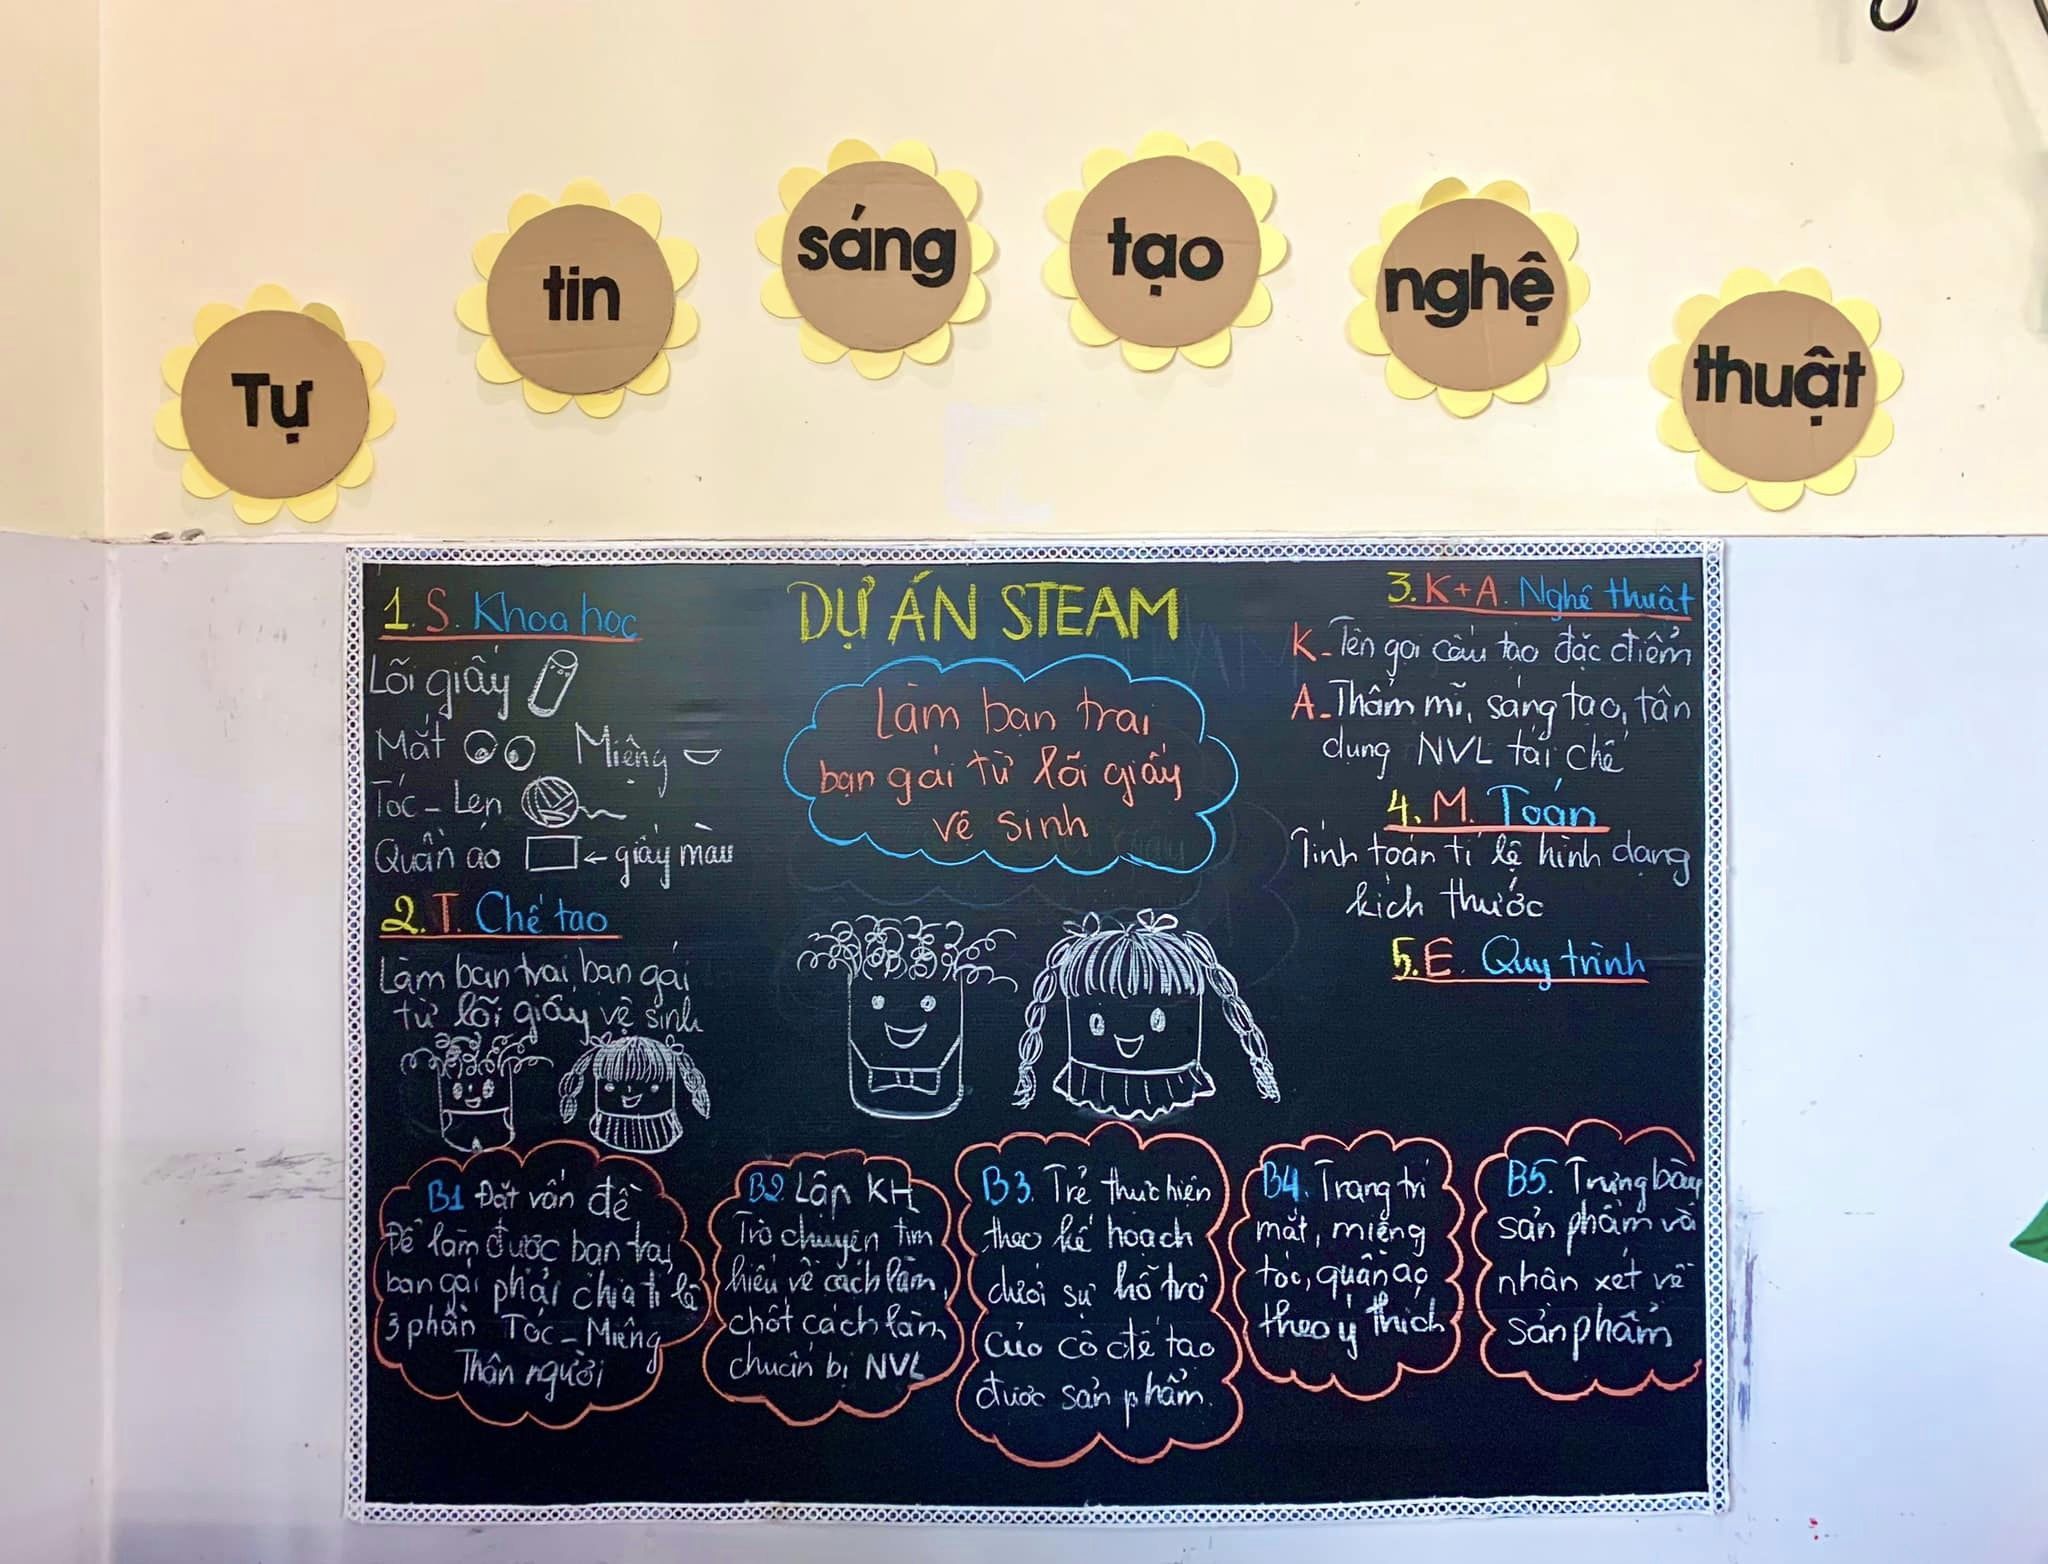 Tự tin sáng tạo nghệ thuật
DỰ ÁN STEAM
Làm bạn trai
bạn gái từ lõi giấy
vệ sinh
1. S. Khoa học
Lõi giấy
Mắt Miệng
Tóc - Len
Quần áo ← giấy màu
2. T. Chế tạo
Làm bạn trai, bạn gái
từ lõi giấy vệ sinh
3. K + A. Nghệ thuật
K - Tên gọi cấu tạo đặc điểm
A - Thẩm mĩ, sáng tạo, tận
dụng NVL tái chế
4. M. Toán
Tính toán tỉ lệ hình dạng
kích thước
5. E. Quy trình
B1 Đặt vấn đề
Để làm được bạn trai,
bạn gái phải chia tỉ lệ
3 phần Tóc - Miệng
Thân người
B2. Lập KH
Trò chuyện tìm
hiểu về cách làm,
chốt cách làm,
chuẩn bị NVL
B3. Trẻ thực hiện
theo kế hoạch
dưới sự hỗ trợ
của cô để tạo
được sản phẩm.
B4. Trang trí
mắt, miệng,
tóc, quần áo
theo ý thích
B5. Trưng bày
sản phẩm và
nhận xét về
sản phẩm